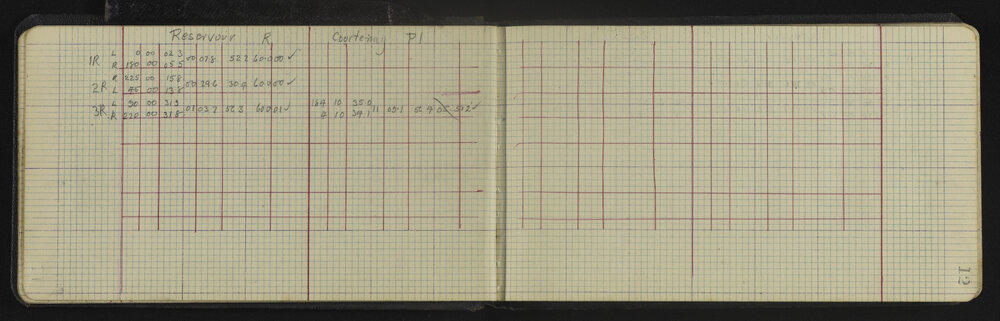 Reservour R Courtenay Pl
L 0 00 02.3
1R 00 07.8 52.2 60.0.00 ✓
R 180 00 05.5
R 225 00 15.8
2R 00 29.6 30.4 60.0.00 ✓
L 45 00 13.8
L 90 00 31.9 184 10 35.0
3R 01 03.7 56.3 60.0.01 ✓ 11 05.1 51.2 ✓
R 270 00 31.8 4 10 34.1
12